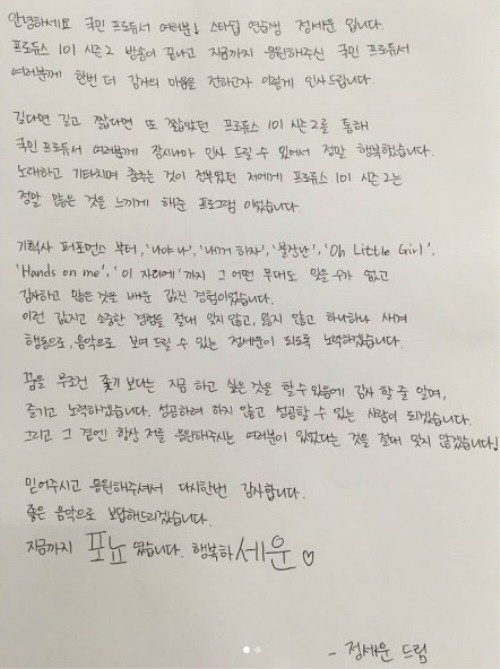 안녕하세요 국민 프로듀서 여러분! 스타쉽 연습생 정세운 입니다.
프로듀스 101 시즌2 방송이 끝나고 지금까지 응원해주신 국민 프로듀서
여러분께 한번 더 감사의 마음을 전하고자 이렇게 인사드립니다.
길다면 길고 짧다면 또 짧았던 프로듀스 101 시즌2를 통해
국민 프로듀서 여러분께 잠시나마 인사 드릴 수 있어서 정말 행복했습니다.
노래하고 기타치며 춤추는 것이 전부였던 저에게 프로듀스 101 시즌2는
정말 많은 것을 느끼게 해준 프로그램 이었습니다.
기획사 퍼포먼스 부터, '나야 나', '내꺼 하자', '불장난', 'Oh Little Girl',
'Hands on me', '이 자리에' 까지 그 어떤 무대도 잊을 수가 없고
감사하고 많은 것을 배운 값진 경험이었습니다.
이런 값지고 소중한 경험을 절대 잊지 않고, 잃지 않고 하나하나 새겨
행동으로, 음악으로 보여 드릴 수 있는 정세운이 되도록 노력하겠습니다.
꿈을 무조건 쫓기 보다는 지금 하고 싶은 것을 할 수 있음에 감사 할 줄 알며,
즐기고 노력하겠습니다. 성공하려 하지 않고 성공할 수 있는 사람이 되겠습니다.
그리고 그 곁엔 항상 저를 응원해주시는 여러분이 있었다는 것을 절대 잊지 않겠습니다!
믿어주시고 응원해주셔서 다시한번 감사합니다.
좋은 음악으로 보답해드리겠습니다.
지금까지 포뇨 였습니다. 행복하세운♡
- 정세운 드림